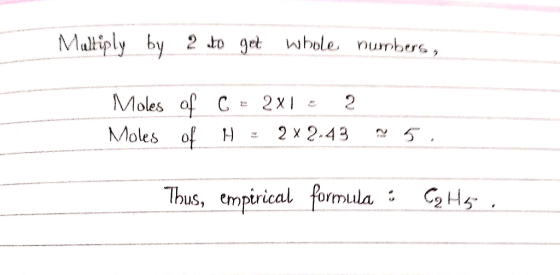 Multiply by 2 to get whole numbers,
Moles of C = 2×1 = 2
Moles of H = 2×2.43 ≈ 5.
Thus, empirical formula : C₂H₅.